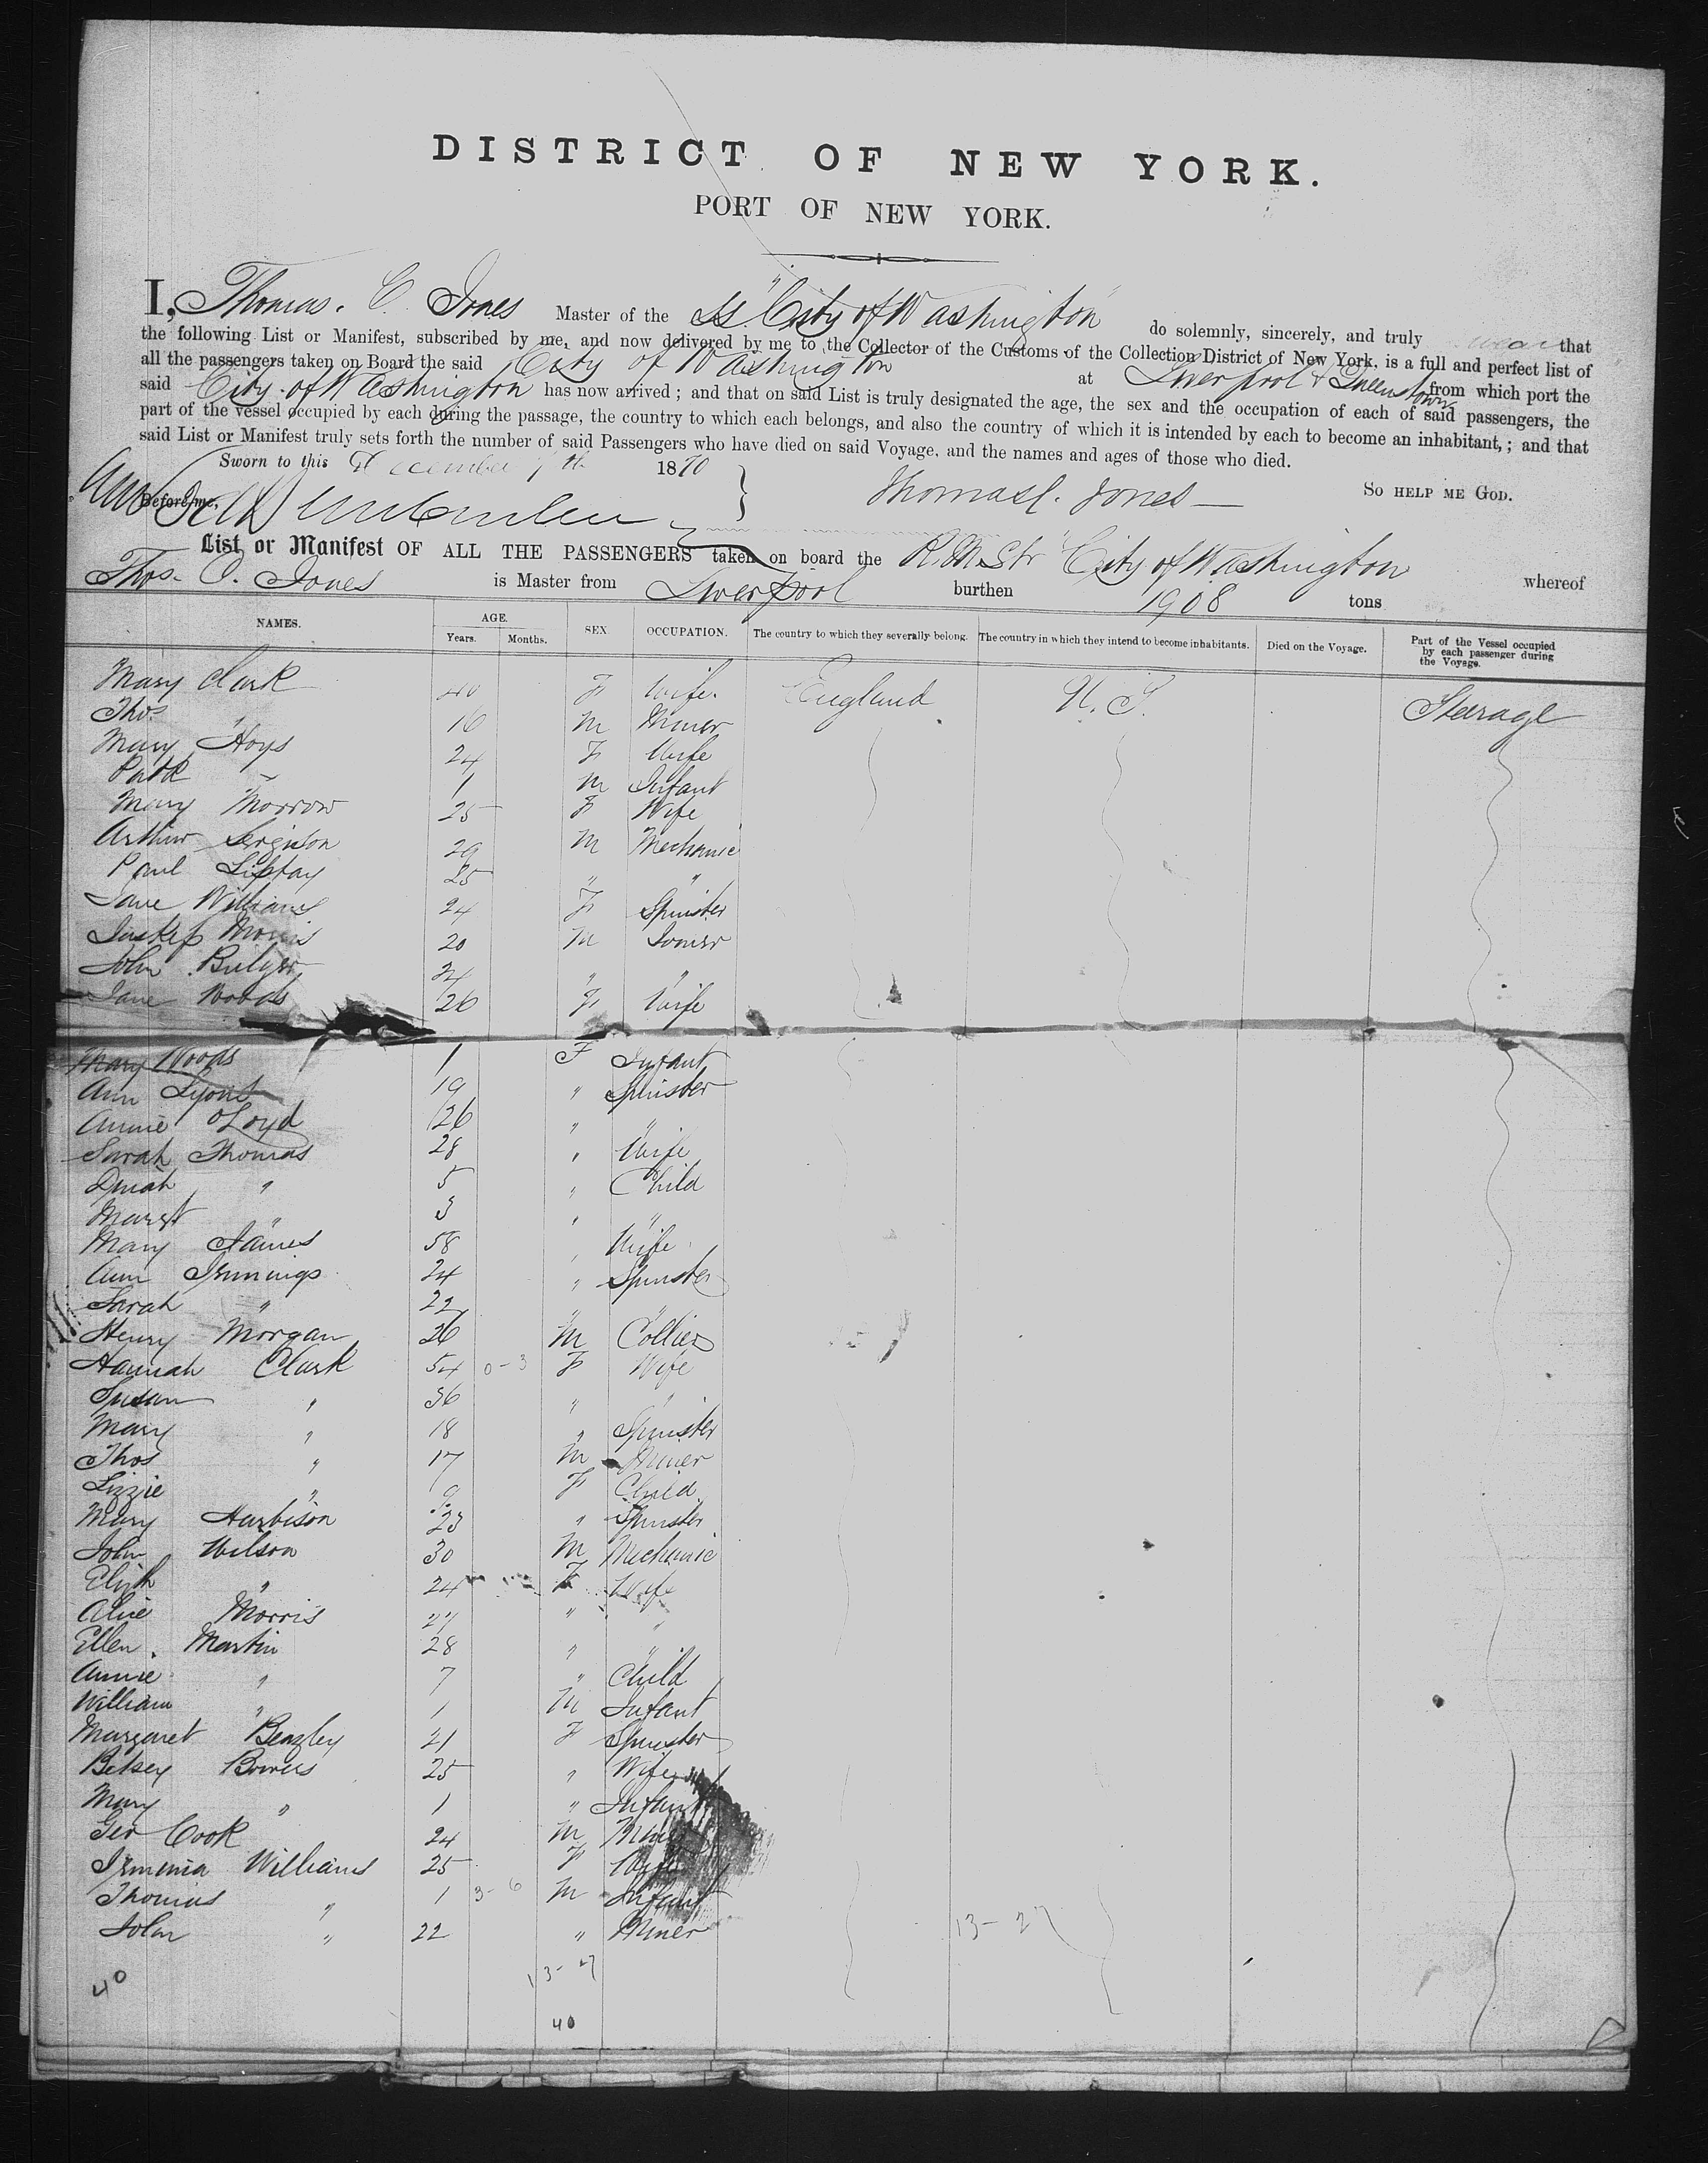 DISTRICT OF NEW YORK.
PORT OF NEW YORK.
I, Thomas. C. Jones Master of the SS "City of Washington" do solemnly, sincerely, and truly swear that
the following List or Manifest, subscribed by me, and now delivered by me to the Collector of the Customs of the Collection District of New York, is a full and perfect list of
all the passengers taken on Board the said City of Washington at Liverpool & Queenstown from which port the
said City of Washington has now arrived; and that on said List is truly designated the age, the sex and the occupation of each of said passengers, the
part of the vessel occupied by each during the passage, the country to which each belongs, and also the country of which it is intended by each to become an inhabitant,; and that
said List or Manifest truly sets forth the number of said Passengers who have died on said Voyage, and the names and ages of those who died.
Sworn to this December 7th 1870
Before me, Thomas C. Jones So HELP ME GOD.
List or Manifest OF ALL THE PASSENGERS taken on board the R.M.Str "City of Washington whereof
Thos. C. Jones is Master from Liverpool burthen 1908 tons
NAMES. AGE. Years. Months. SEX OCCUPATION. The country to which they severally belong. The country in which they intend to become inhabitants. Died on the Voyage. Part of the Vessel occupied by each passenger during the Voyage.
Mary Clark 40 F Wife. England U.S. Steerage
Thos " 16 M Miner
Mary Hoys 24 F Wife
Patk " 1 M Infant
Mary Morrow 25 F Wife
Arthur Ferguson 29 M Mechanic
Paul Liptay 25 " "
Jane Williams 24 F Spinster
Morris 20 M Joiner
John Bulger 24 " "
Jane Woods 26 F Wife
Mary Woods 1 F Infant
Ann Lyons 19 " Spinster
Annie Loyd 26 " "
Sarah Thomas 28 " Wife
" 5 " Child
Margt " 3 " "
Mary James 58 " Wife
Ann Jennings 24 " Spinster
Sarah " 22 " "
Henry Morgan 26 M Collier
Hannah Clark 54 0-3 F Wife
Susan " 36 " "
Mary " 18 " Spinster
Thos " 17 M Miner
Lizzie " 9 F Child
Mary Harbison 23 " Spinster
John Wilson 30 M Mechanic
Elizth " 24 F Wife
Alice Morris 27 " "
Ellen Martin 28 " "
Annie " 7 " Child
William " 1 M Infant
Margaret Beazley 21 F Spinster
Betsey Bowers 25 " Wife
Mary " 1 " Infant
Geo Cook 24 M Miner
Williams 25 F Wife
Thomas " 1 3-6 M Infant
John " 22 " Miner 13-27
40 13-27
40